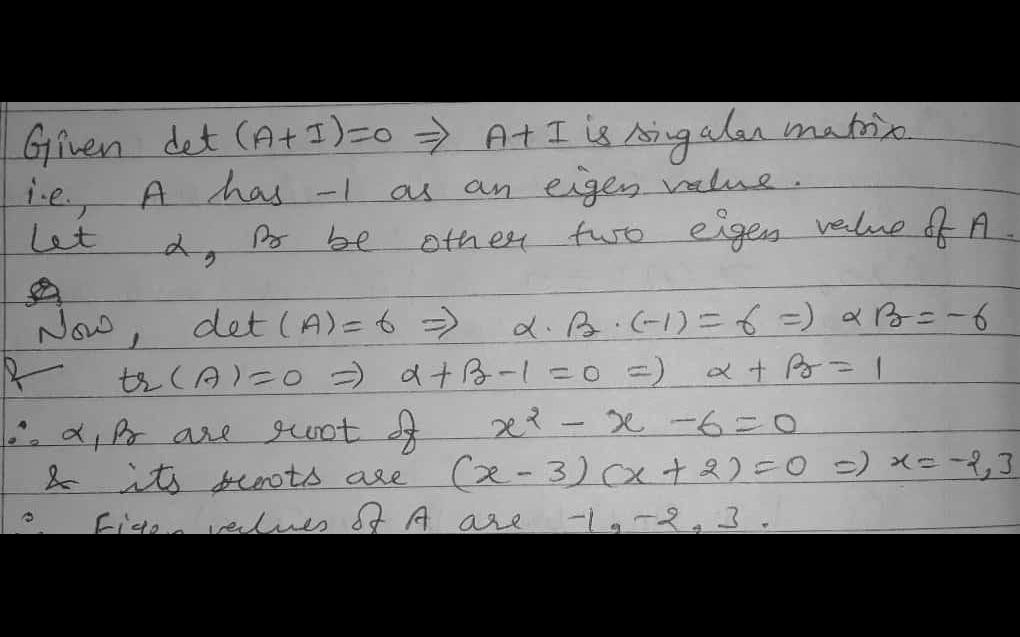 Given det (A+I)=0 ⇒ A+I is singular matrix.
i.e., A has -1 as an eigen value.
Let α, β be other two eigen value of A.
Now, det (A)=6 ⇒ α.β.(-1)=6 ⇒ αβ=-6
& tr(A)=0 ⇒ α+β-1=0 ⇒ α+β=1
∴ α, β are root of x² - x - 6=0
& its roots are (x-3)(x+2)=0 ⇒ x=-2,3
∴ Eigen values of A are -1, -2, 3.